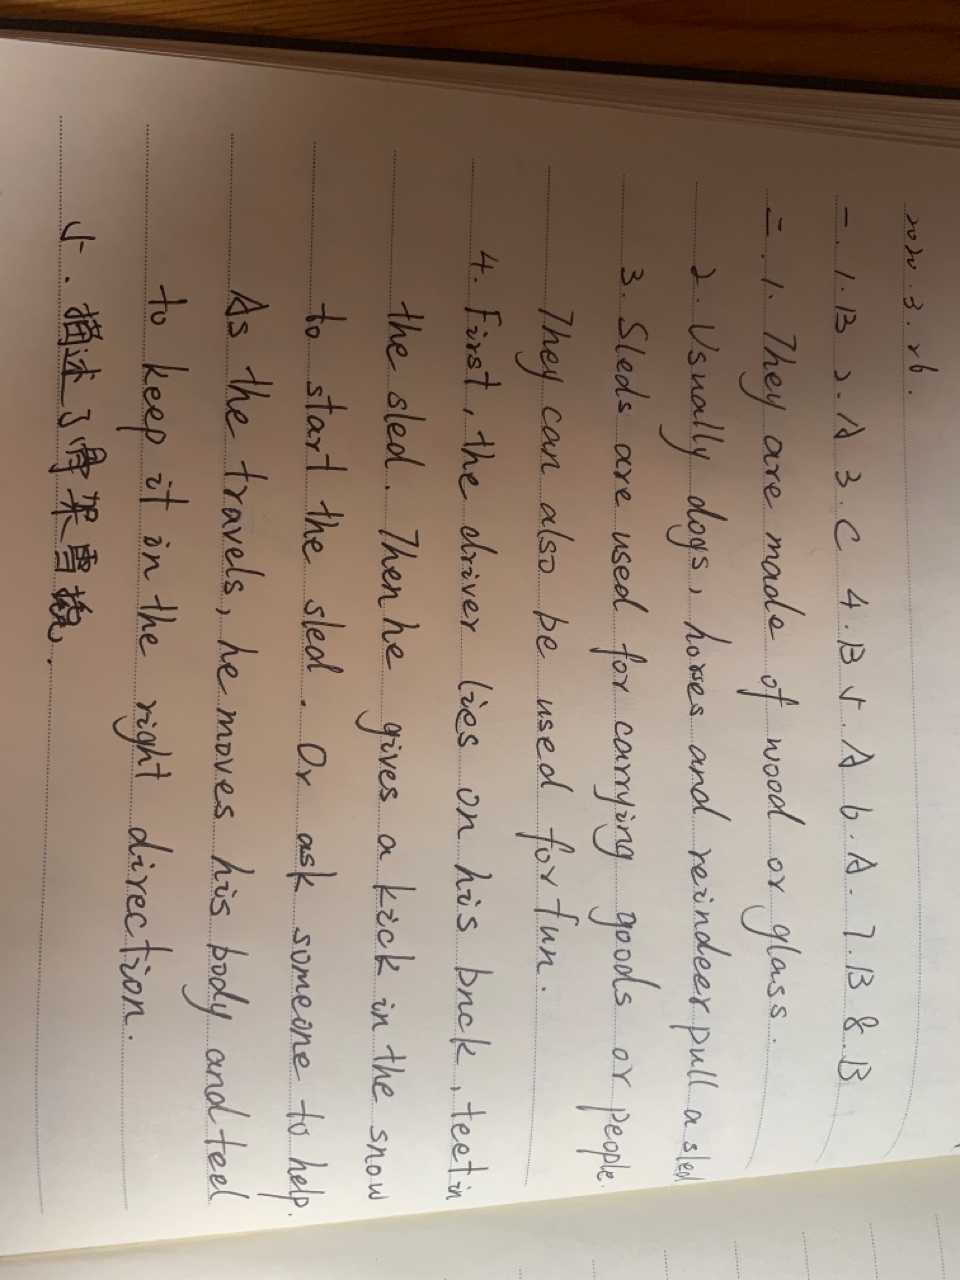 2020.3.26.
一.1.B 2.A 3.C 4.B 5.A 6.A. 7.B 8.B
二.1. They are made of wood or glass.
2. Usually dogs, horses and reindeer pull a sled
3. Sleds are used for carrying goods or people.
They can also be used for fun.
4. First, the driver lies on his back, feet in
the sled. Then he gives a kick in the snow
to start the sled. Or ask someone to help.
As the travels, he moves his body and feel
to keep it in the right direction.
小. 描述了骨架雪橇.